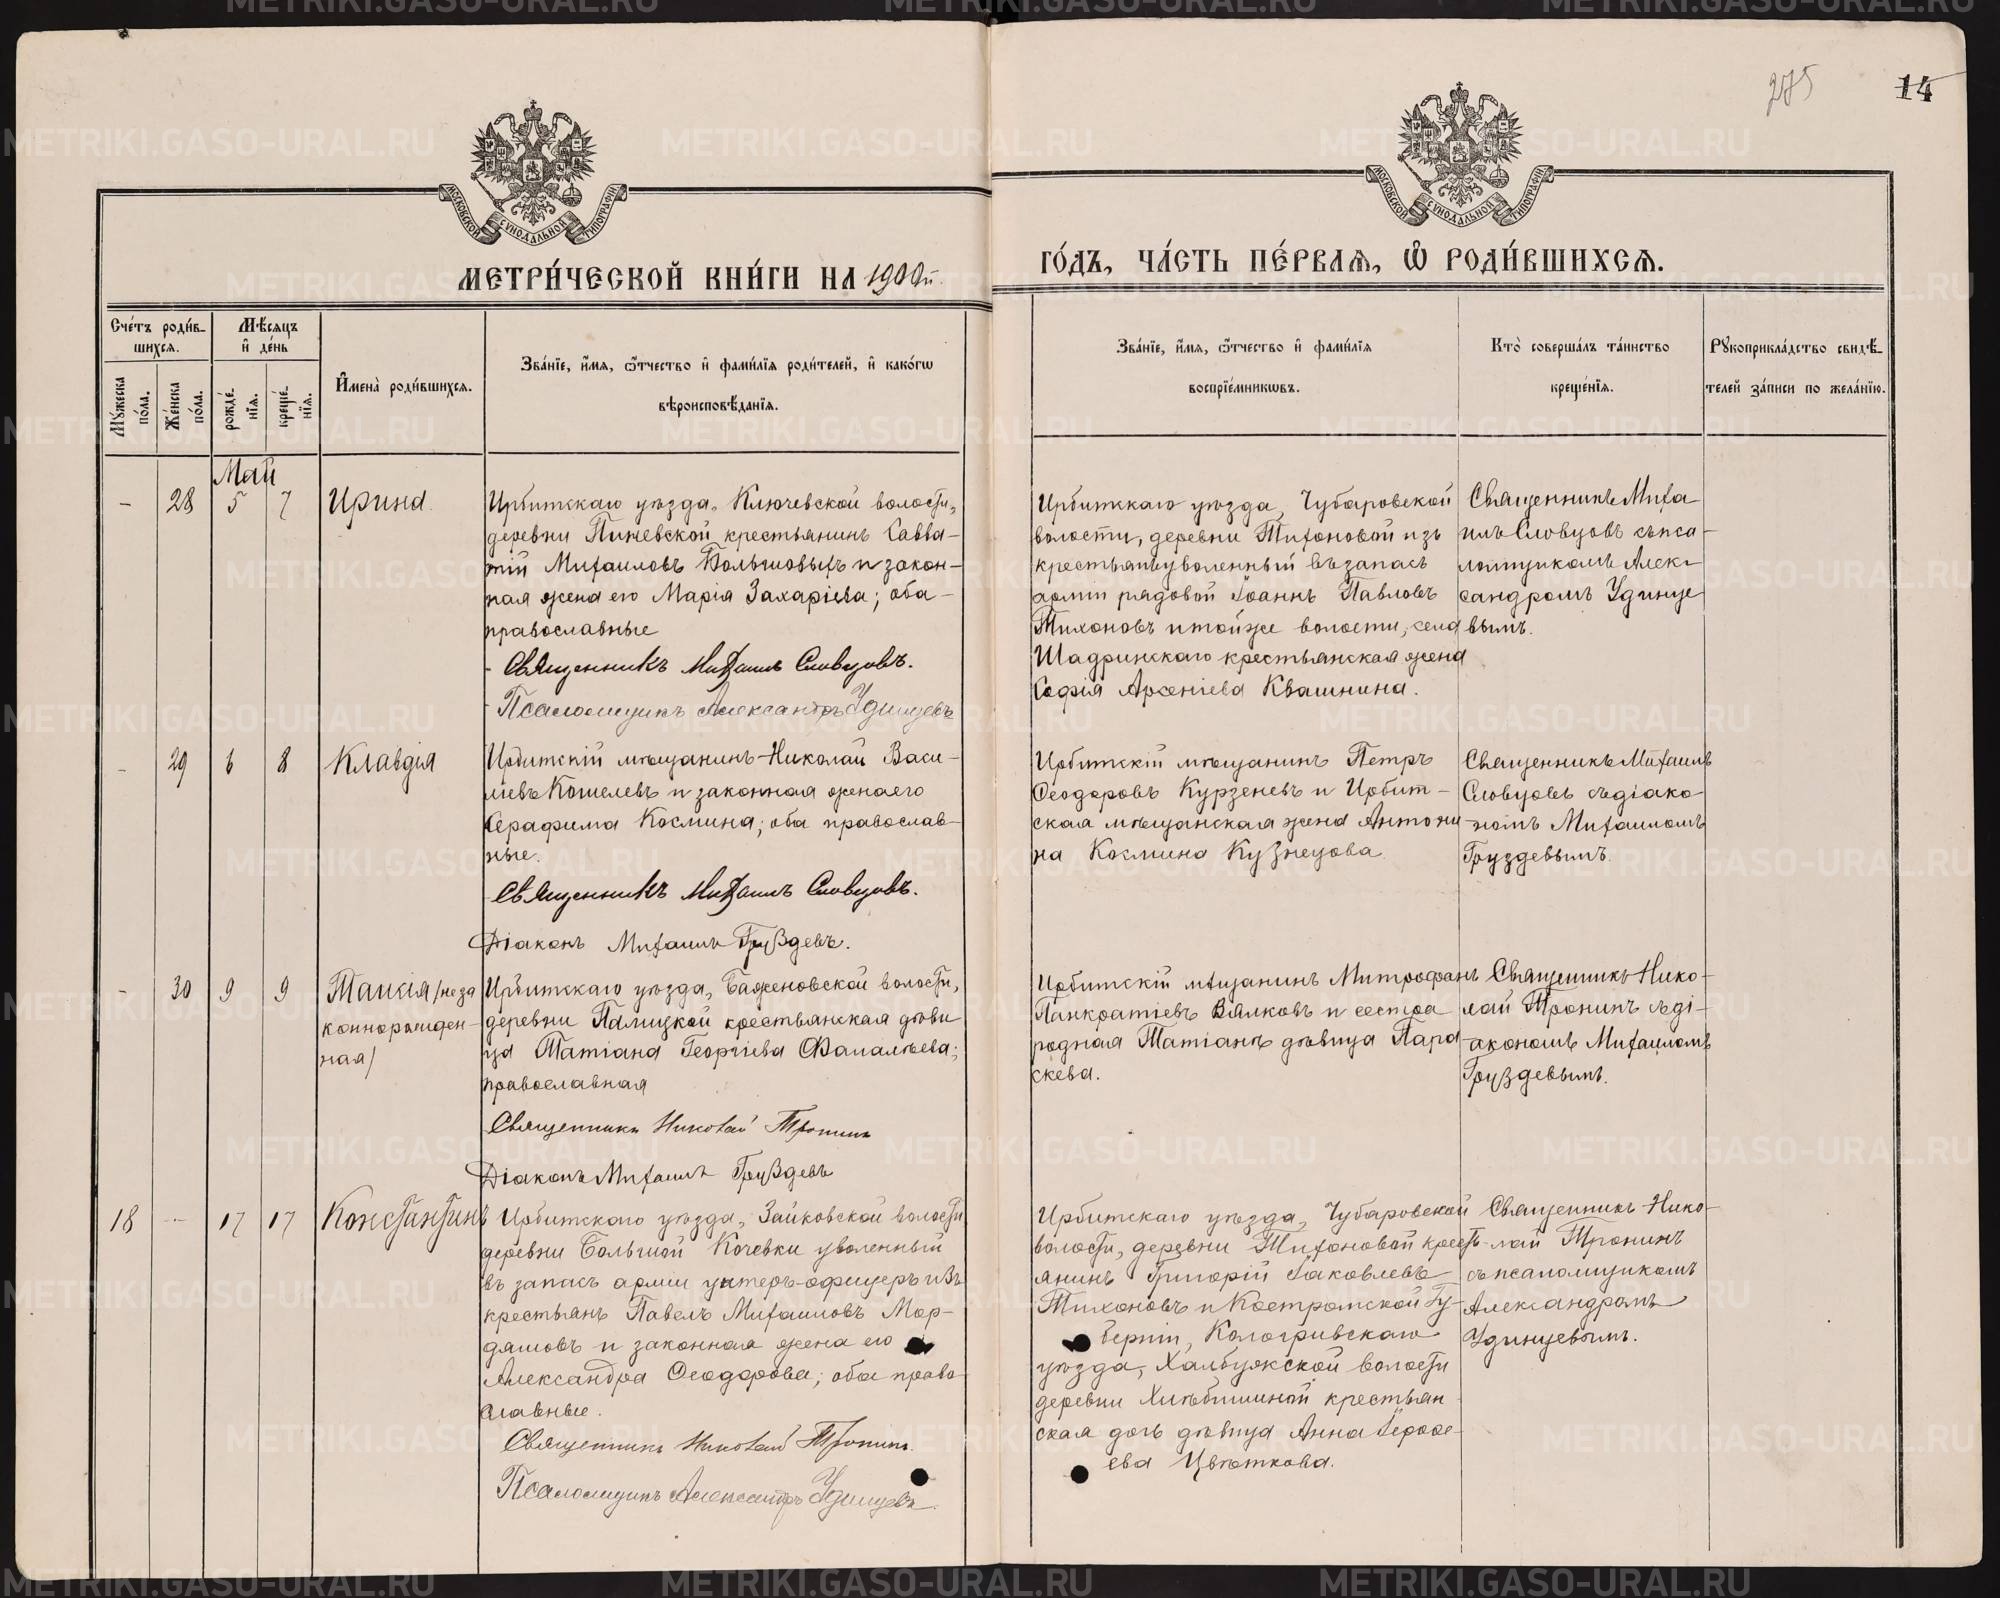 275
14
МОСКОВСКОЙ СѴНОДАЛЬНОЙ ТИПОГРАФІИ
МОСКОВСКОЙ СѴНОДАЛЬНОЙ ТИПОГРАФІИ
МЕТРИ́ЧЕСКОЙ КНИ́ГИ НА 1900й
ГО́ДЪ, ЧА́СТЬ ПЕ́РВАѦ, Ѡ РОДИ́ВШИХСѦ.
Сче́тъ роди́в-
шихсѧ.
Мꙋ́жеска по́ла.
Же́нска по́ла.
Мѣ́сѧцъ
и҆ де́нь
рожде́-нїѧ.
креще́-нїѧ.
И҆мена̀ роди́вшихсѧ.
Зва́нїе, и҆́мѧ, ѻ҆́тчество и҆ фами́лїѧ роди́телей, и҆ како́гѡ
вѣроисповѣ́данїѧ.
Зва́нїе, и҆́мѧ, ѻ҆́тчество и҆ фами́лїѧ
воспрїе́мникѡвъ.
Кто̀ соверша́лъ та́инство
креще́нїѧ.
Рꙋкоприкла́дство свидѣ́-
телей за́писи по жела́нїю.
Май
- 28 5 7 Ирина.
Ирбитскаго уѣзда, Ключевской волости,
деревни Пиневской крестьянинъ Савва-
тій Михаиловъ Большовыхъ и закон-
ная жена его Марія Захаріева; оба
православные
Священникъ Михаилъ Словцовъ.
Псаломщикъ Александръ Удинцевъ
Ирбитскаго уѣзда, Чубаровской
волости, деревни Тихоновой изъ
крестьянъ уволенный въ запасъ
арміи рядовой Іоаннъ Павловъ
Тихоновъ и той же волости, села
Шадринскаго крестьянская жена
Софія Арсеніева Квашнина.
Священникъ Миха-
илъ Словцовъ съ пса-
ломщикомъ Алек-
сандромъ Удинце
вымъ.
- 29 6 8 Клавдія
Ирбитскій мѣщанинъ Николай Васи-
ліевъ Кошелевъ и законная жена его
Серафима Космина; оба православ-
ные.
Священникъ Михаилъ Словцовъ.
Діаконъ Михаилъ Груздевъ.
Ирбитскій мѣщанинъ Петръ
Ѳеодоровъ Курзеневъ и Ирбит-
ская мѣщанская жена Антони
на Космина Кузнецова
Священникъ Михаилъ
Словцовъ съ діако-
номъ Михаиломъ
Груздевымъ.
- 30 9 9 Таисія /неза
коннорожден-
ная/
Ирбитскаго уѣзда, Баженовской волости,
деревни Палицкой крестьянская дѣви
ца Татіана Георгіева Фалалѣева;
православная
Священникъ Николай Тронинъ
Діаконъ Михаилъ Груздевъ
Ирбитскій мѣщанинъ Митрофанъ
Панкратіевъ Вялковъ и сестра
родная Татіанѣ дѣвица Пара
скева.
Священникъ Нико-
лай Тронинъ съ ді-
акономъ Михаиломъ
Груздевымъ.
18 - 17 17 Константинъ
Ирбитскаго уѣзда, Зайковской волости
деревни Большой Кочевки уволенный
въ запасъ арміи унтеръ-офицеръ изъ
крестьянъ Павелъ Михаиловъ Мор-
дяшовъ и законная жена его
Александра Ѳеодорова; оба право-
славные.
Священникъ Николай Тронинъ.
Псаломщикъ Александръ Удинцевъ.
Ирбитскаго уѣзда, Чубаровской
волости, деревни Тихоновой кресть-
янинъ Григорій Іаковлевъ
Тихоновъ и Костромской гу-
берніи, Кологривскаго
уѣзда, Халбужской волости
деревни Хлѣбишиной крестьян-
ская дочь дѣвица Анна Іероѳе-
ева Цвѣткова.
Священникъ Нико-
лай Тронинъ
съ псаломщикомъ
Александромъ
Удинцевымъ.
METRIKI.GASO-URAL.RU